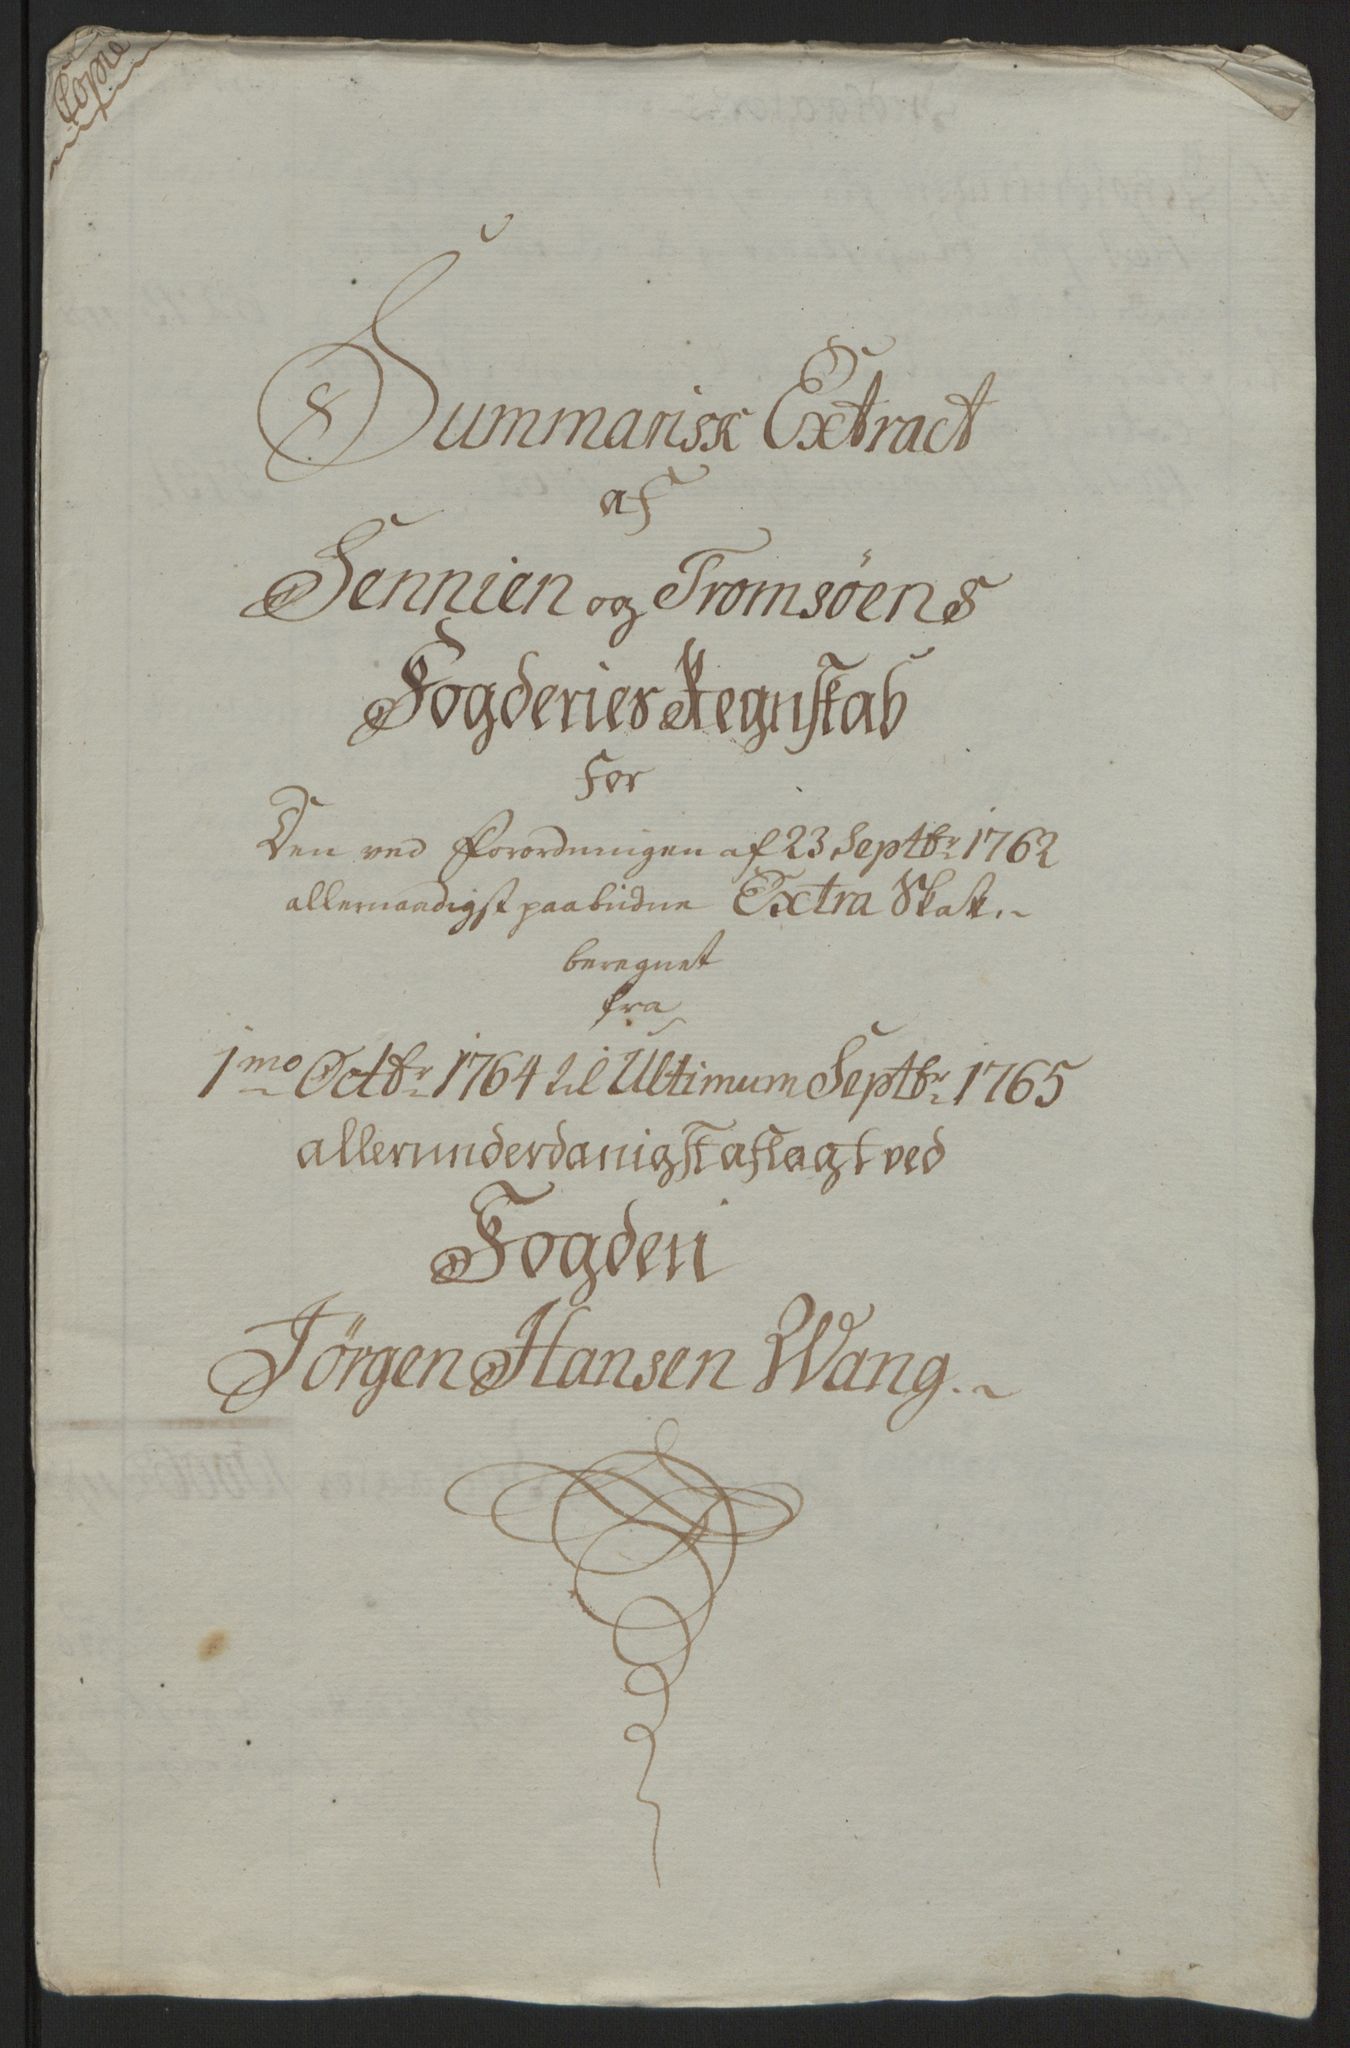 Copie
Summarisk Extract
af
Sennien og Tromsöens
Fogderies Regnskab
for
Den ved Forordningen af 23 Septbr. 1762
allernaadigst paabudne Extra Skatt.
beregnet
fra
1mo Octbr. 1764 til Ultimum Septbr. 1765
allerunderdanigst aflagt ved
Fogden
Jörgen Hansen Wang.